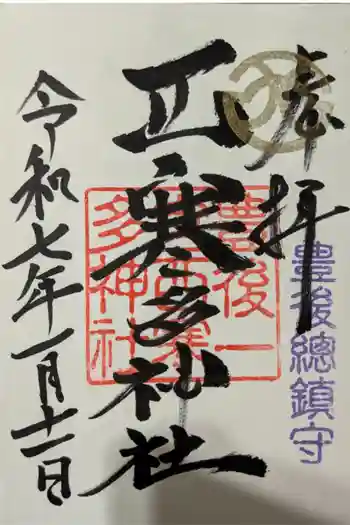 奉拝
豊後總鎮守
西寒多神社
豊後一
西寒
多神社
令和七年一月十一日